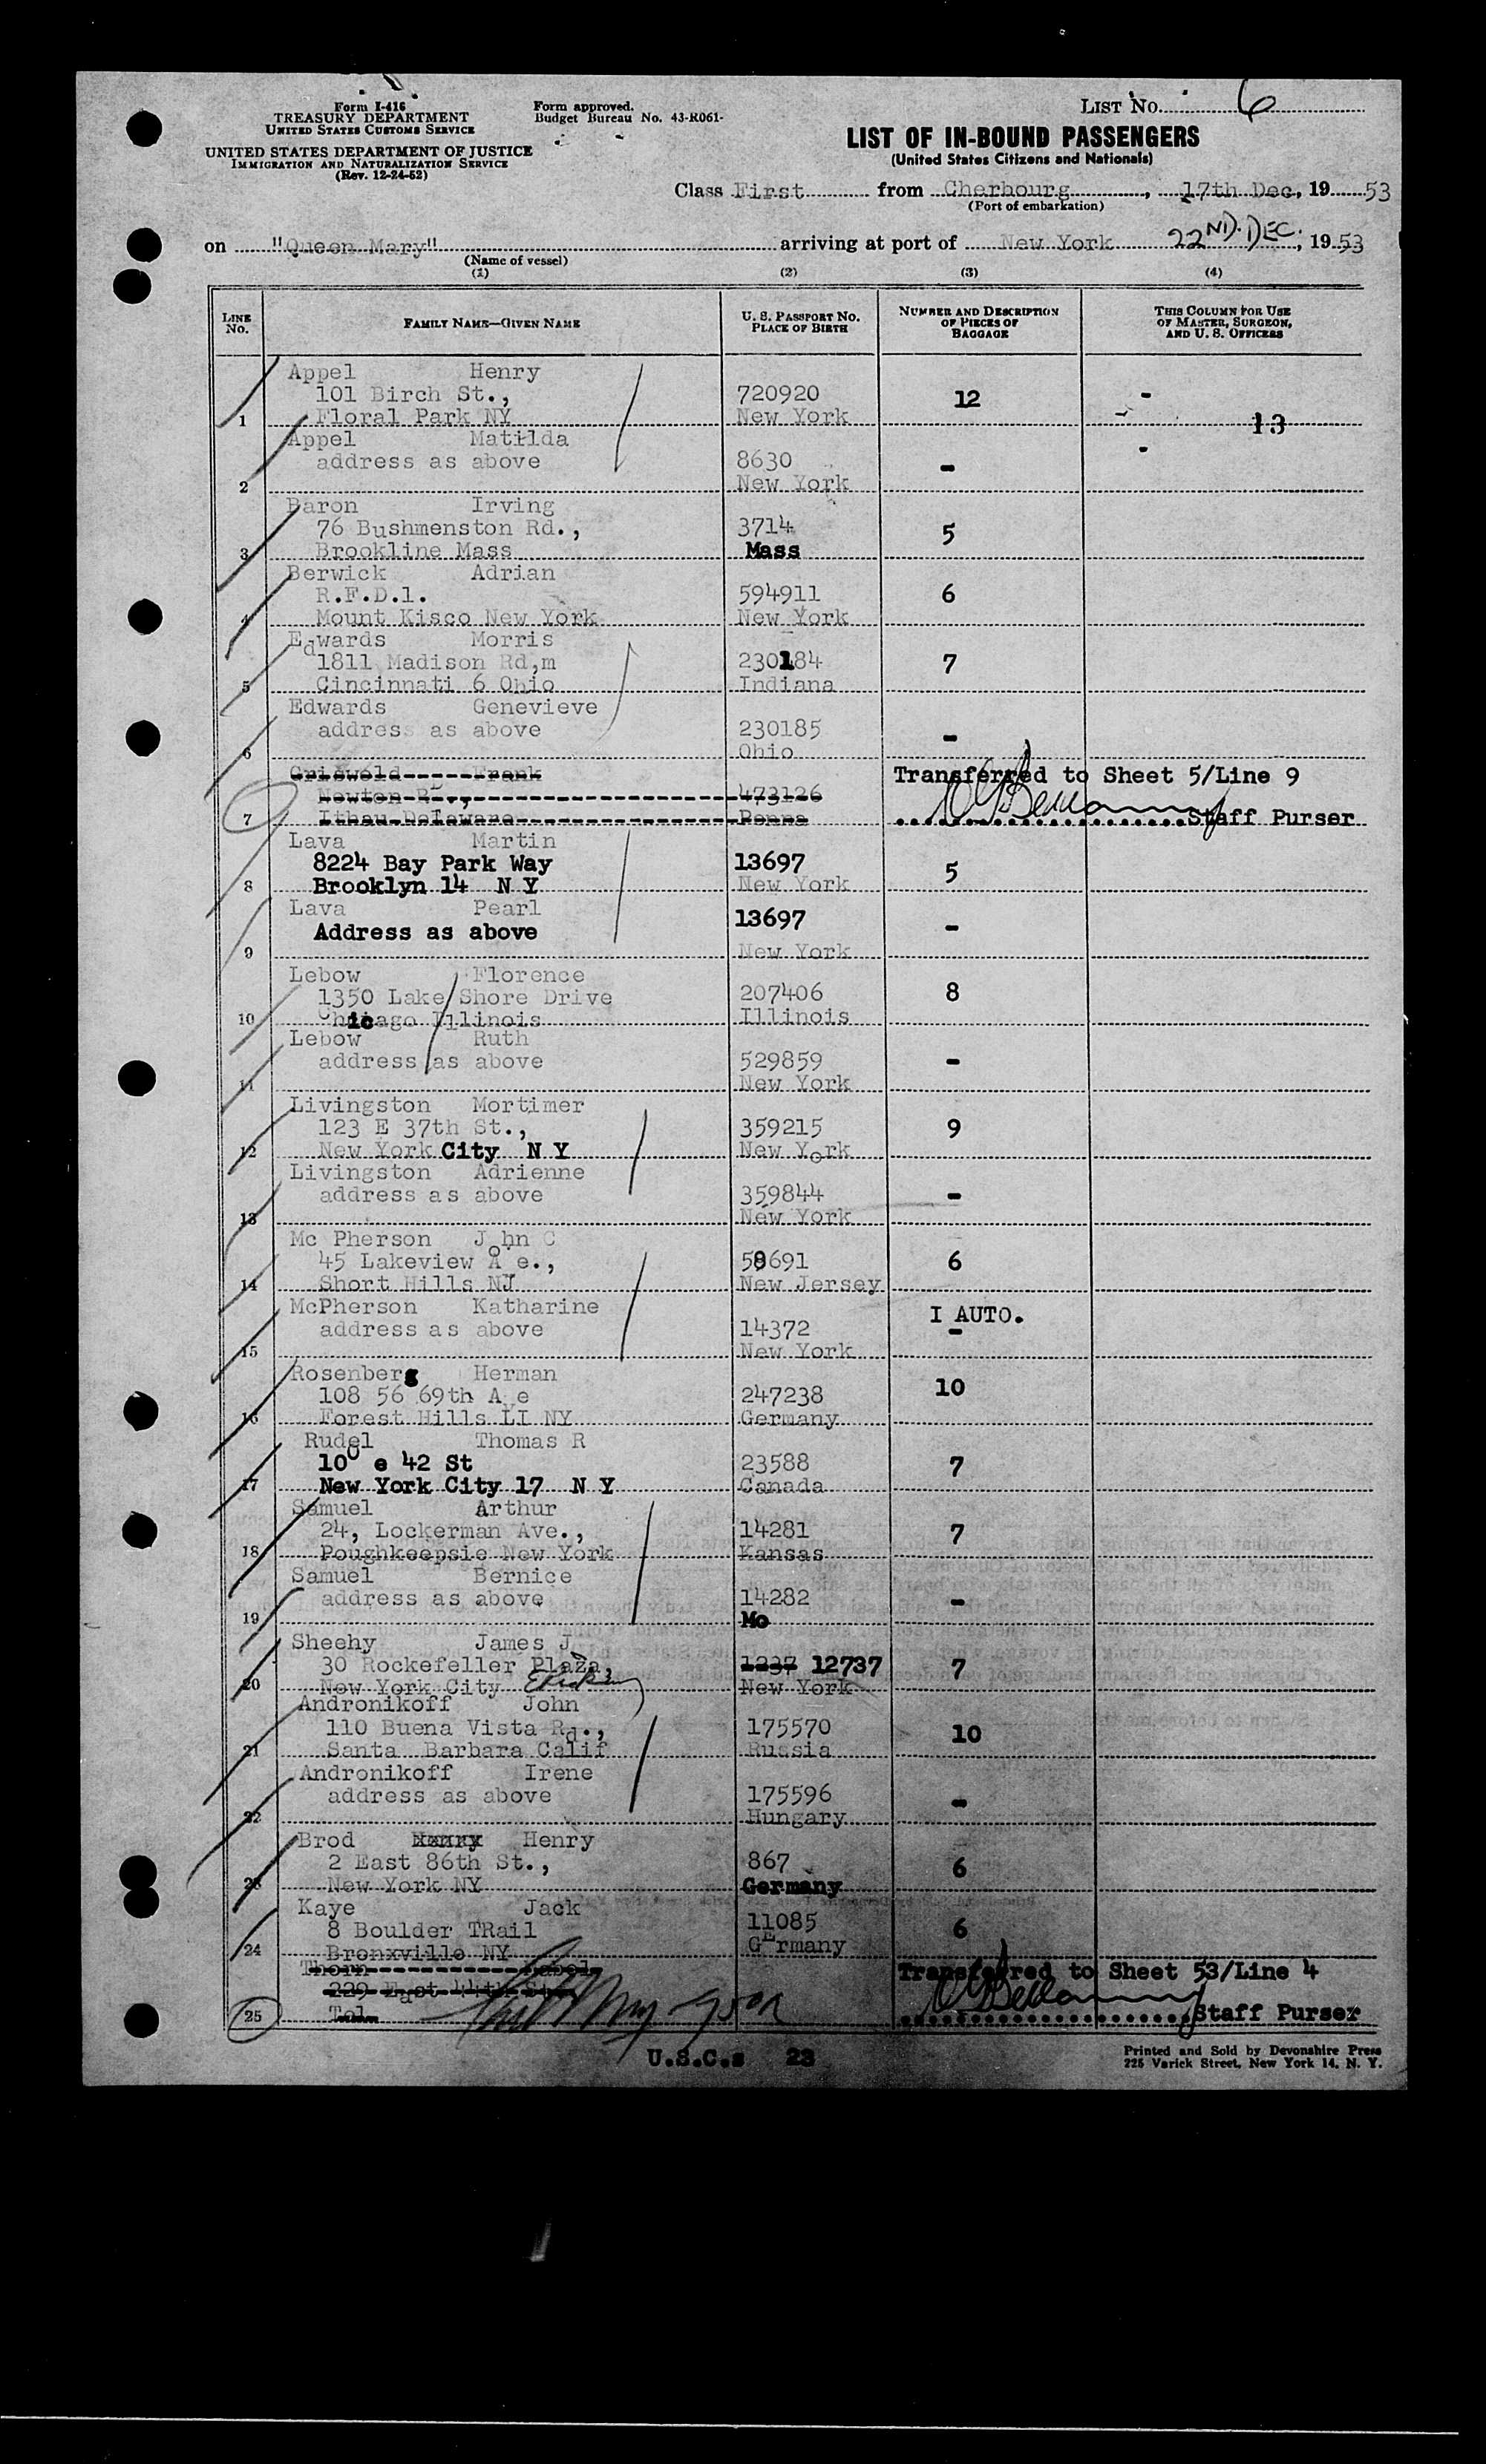 LIST NO. 6
Form I-416
TREASURY DEPARTMENT
UNITED STATES CUSTOMS SERVICE
UNITED STATES DEPARTMENT OF JUSTICE
IMMIGRATION AND NATURALIZATION SERVICE
(Rev. 12-24-52)
Form approved.
Budget Bureau No. 43-R061-
LIST OF IN-BOUND PASSENGERS
(United States Citizens and Nationals)
Class First from Cherbourg, 17th Dec, 19 53
(Port of embarkation)
on "Queen Mary" arriving at port of New York 22ND. DEC., 19 53
(Name of vessel)
(1) (2) (3) (4)
LINE NO. FAMILY NAME—GIVEN NAME U. S. PASSPORT NO. PLACE OF BIRTH NUMBER AND DESCRIPTION OF PIECES OF BAGGAGE THIS COLUMN FOR USE OF MASTER, SURGEON, AND U. S. OFFICERS
Appel Henry
101 Birch St., 720920 12 -
1 Floral Park NY New York 13
Appel Matilda
address as above 8630 - -
2 New York
Baron Irving
76 Bushmenston Rd., 3714 5
3 Brookline Mass Mass
Berwick Adrian
R.F.D.1. 594911 6
4 Mount Kisco New York New York
Edwards Morris
1811 Madison Rd,m 230184 7
5 Cincinnati 6 Ohio Indiana
Edwards Genevieve
address as above 230185 -
6 Ohio
Griswold Frank Transferred to Sheet 5/Line 9
Newton Rd., 473126
7 Ithau Delaware Penna Staff Purser
Lava Martin
8224 Bay Park Way 13697 5
8 Brooklyn 14 N Y New York
Lava Pearl 13697
Address as above -
9 New York
Lebow Florence
1350 Lake Shore Drive 207406 8
10 Chicago Illinois Illinois
Lebow Ruth
address as above 529859 -
11 New York
Livingston Mortimer
123 E 37th St., 359215 9
12 New York City N Y New York
Livingston Adrienne
address as above 359844 -
13 New York
Mc Pherson John C
45 Lakeview A e., 58691 6
14 Short Hills NJ New Jersey
McPherson Katharine I AUTO.
address as above 14372 -
15 New York
Rosenberg Herman
108 56 69th A e 247238 10
16 Forest Hills LI NY Germany
Rudel Thomas R
100 e 42 St 23588 7
17 New York City 17 N Y Canada
Samuel Arthur
24, Lockerman Ave., 14281 7
18 Poughkeepsie New York Kansas
Samuel Bernice
address as above 14282 -
19 Mo
Sheehy James J
30 Rockefeller Plaza, 1237 12737 7
20 New York City New York
Andronikoff John
110 Buena Vista Rd., 175570 10
21 Santa Barbara Calif Russia
Andronikoff Irene
address as above 175596 -
22 Hungary
Brod Henry Henry
2 East 86th St., 867 6
23 New York NY Germany
Kaye Jack
8 Boulder TRail 11085 6
24 Bronxville NY GErmany
Thorn Transferred to Sheet 53/Line 4
229 East 44th St.
25 Tol Staff Purser
U.S.C.s 23
Printed and Sold by Devonshire Press
225 Varick Street, New York 14, N. Y.